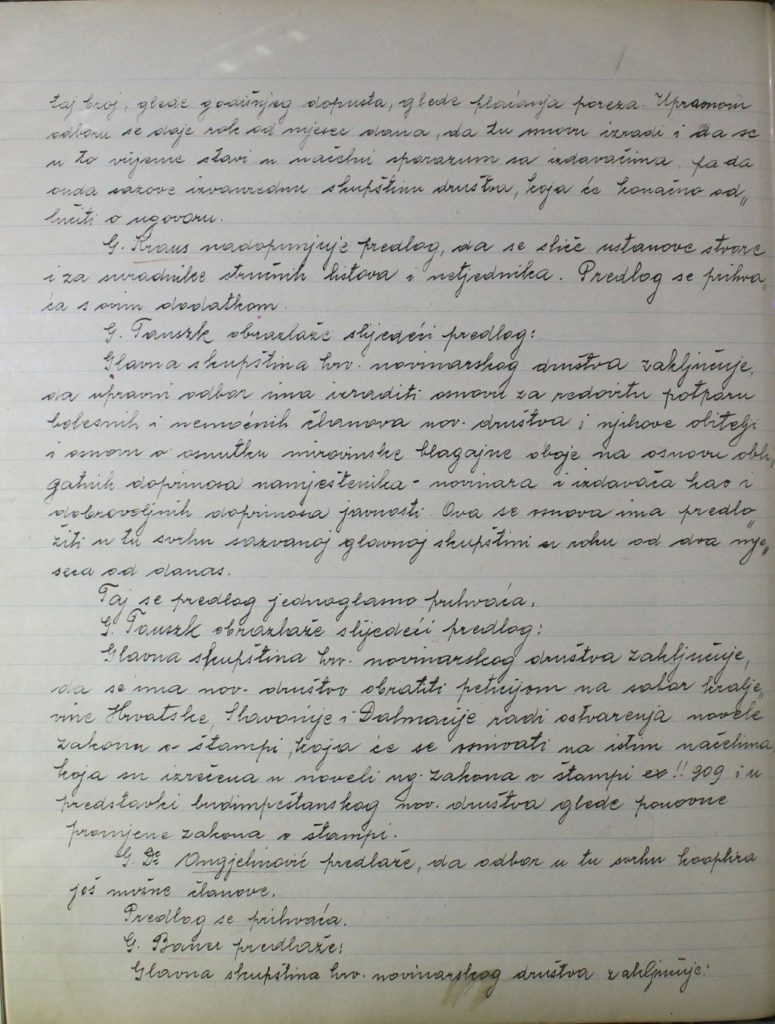 taj broj, glede godišnjeg dopusta, glede plaćanja poreza. Upravnom
odboru se daje rok od mjesec dana, da tu osnovu izradi i da se
u to vrijeme stavi u načelni sporazum sa izdavačima, pa da
onda sazove izvanrednu skupštinu društva, koja će konačno od„
lučiti o ugovoru.
G. Kraus nadopunjuje predlog, da se slične ustanove stvore
i za suradnike stručnih listova i netjednika. Predlog se prihva„
ća s ovim dodatkom.
G. Tauszk obrazlaže slijedeći predlog:
Glavna skupština hrv. novinarskog društva zaključuje,
da upravni odbor ima izraditi osnovu za redovitu potporu
bolesnih i nemoćnih članova nov. društva i njihove obitelji
i osnovu o osnutku mirovinske blagajne oboje na osnovu obli„
gatnih doprinosa namještenika - novinara i izdavača kao i
dobrovoljnih doprinosa javnosti. Ova se osnova ima predlo„
žiti u tu svrhu sazvanoj glavnoj skupštini u roku od dva mje„
seca od danas.
Taj se predlog jednoglasno prihvaća.
G. Tauszk obrazlaže slijedeći predlog:
Glavna skupština hrv. novinarskog društva zaključuje,
da se ima nov. društvo obratiti peticijom na sabor kralje„
vine Hrvatske, Slavonije i Dalmacije radi ostvarenja novele
zakonu o štampi, koja će se osnivati na istim načelima
koja su izrečena u noveli ug. zakona o štampi ex !! 909 i u
predstavki budimpeštanskog nov. društva glede ponovne
promjene zakona o štampi.
G. Dr. Ongjelinović predlaže, da odbor u tu svrhu kooptira
još nužne članove.
Predlog se prihvaća.
G. Bauer predlaže:
Glavna skupština hrv. novinarskog društva zaključuje: